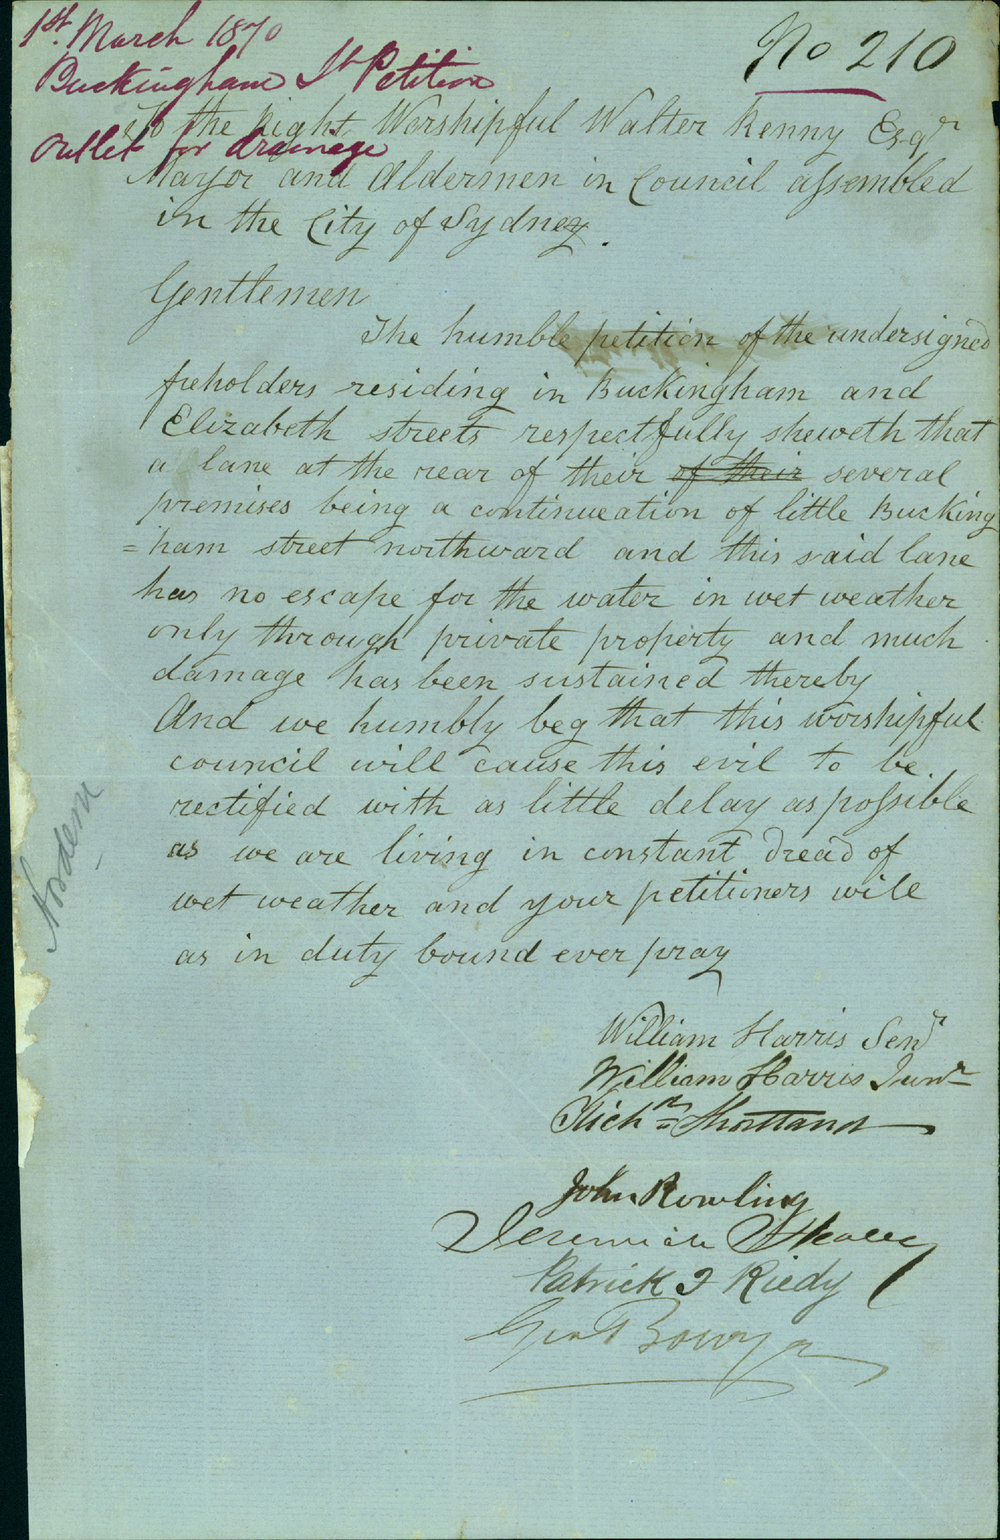 1st. March 1870
No 210
Buckingham St Petition
Outlet for drainage
To the Right Worshipful Walter Renny Esqr
Mayor and Aldermen in Council assembled
in the City of Sydney.
Gentlemen
The humble petition of the undersigned
freholders residing in Buckingham and
Elizabeth streets respectfully sheweth that
a lane at the rear of their of their several
premises being a continueation of little Bucking
=ham street northward and this said lane
has no escape for the water in wet weather
only through private property and much
damage has been sustained thereby
And we humbly beg that this worshipful
council will cause this evil to be
rectified with as little delay as possible
as we are living in constant dread of
wet weather and your petitioners will
as in duty bound ever pray
William Harris Senr
William Harris Junr
Richd Shortland
John Rowling
Jeremiah
Patrick J Riedy
Geo Bowyer